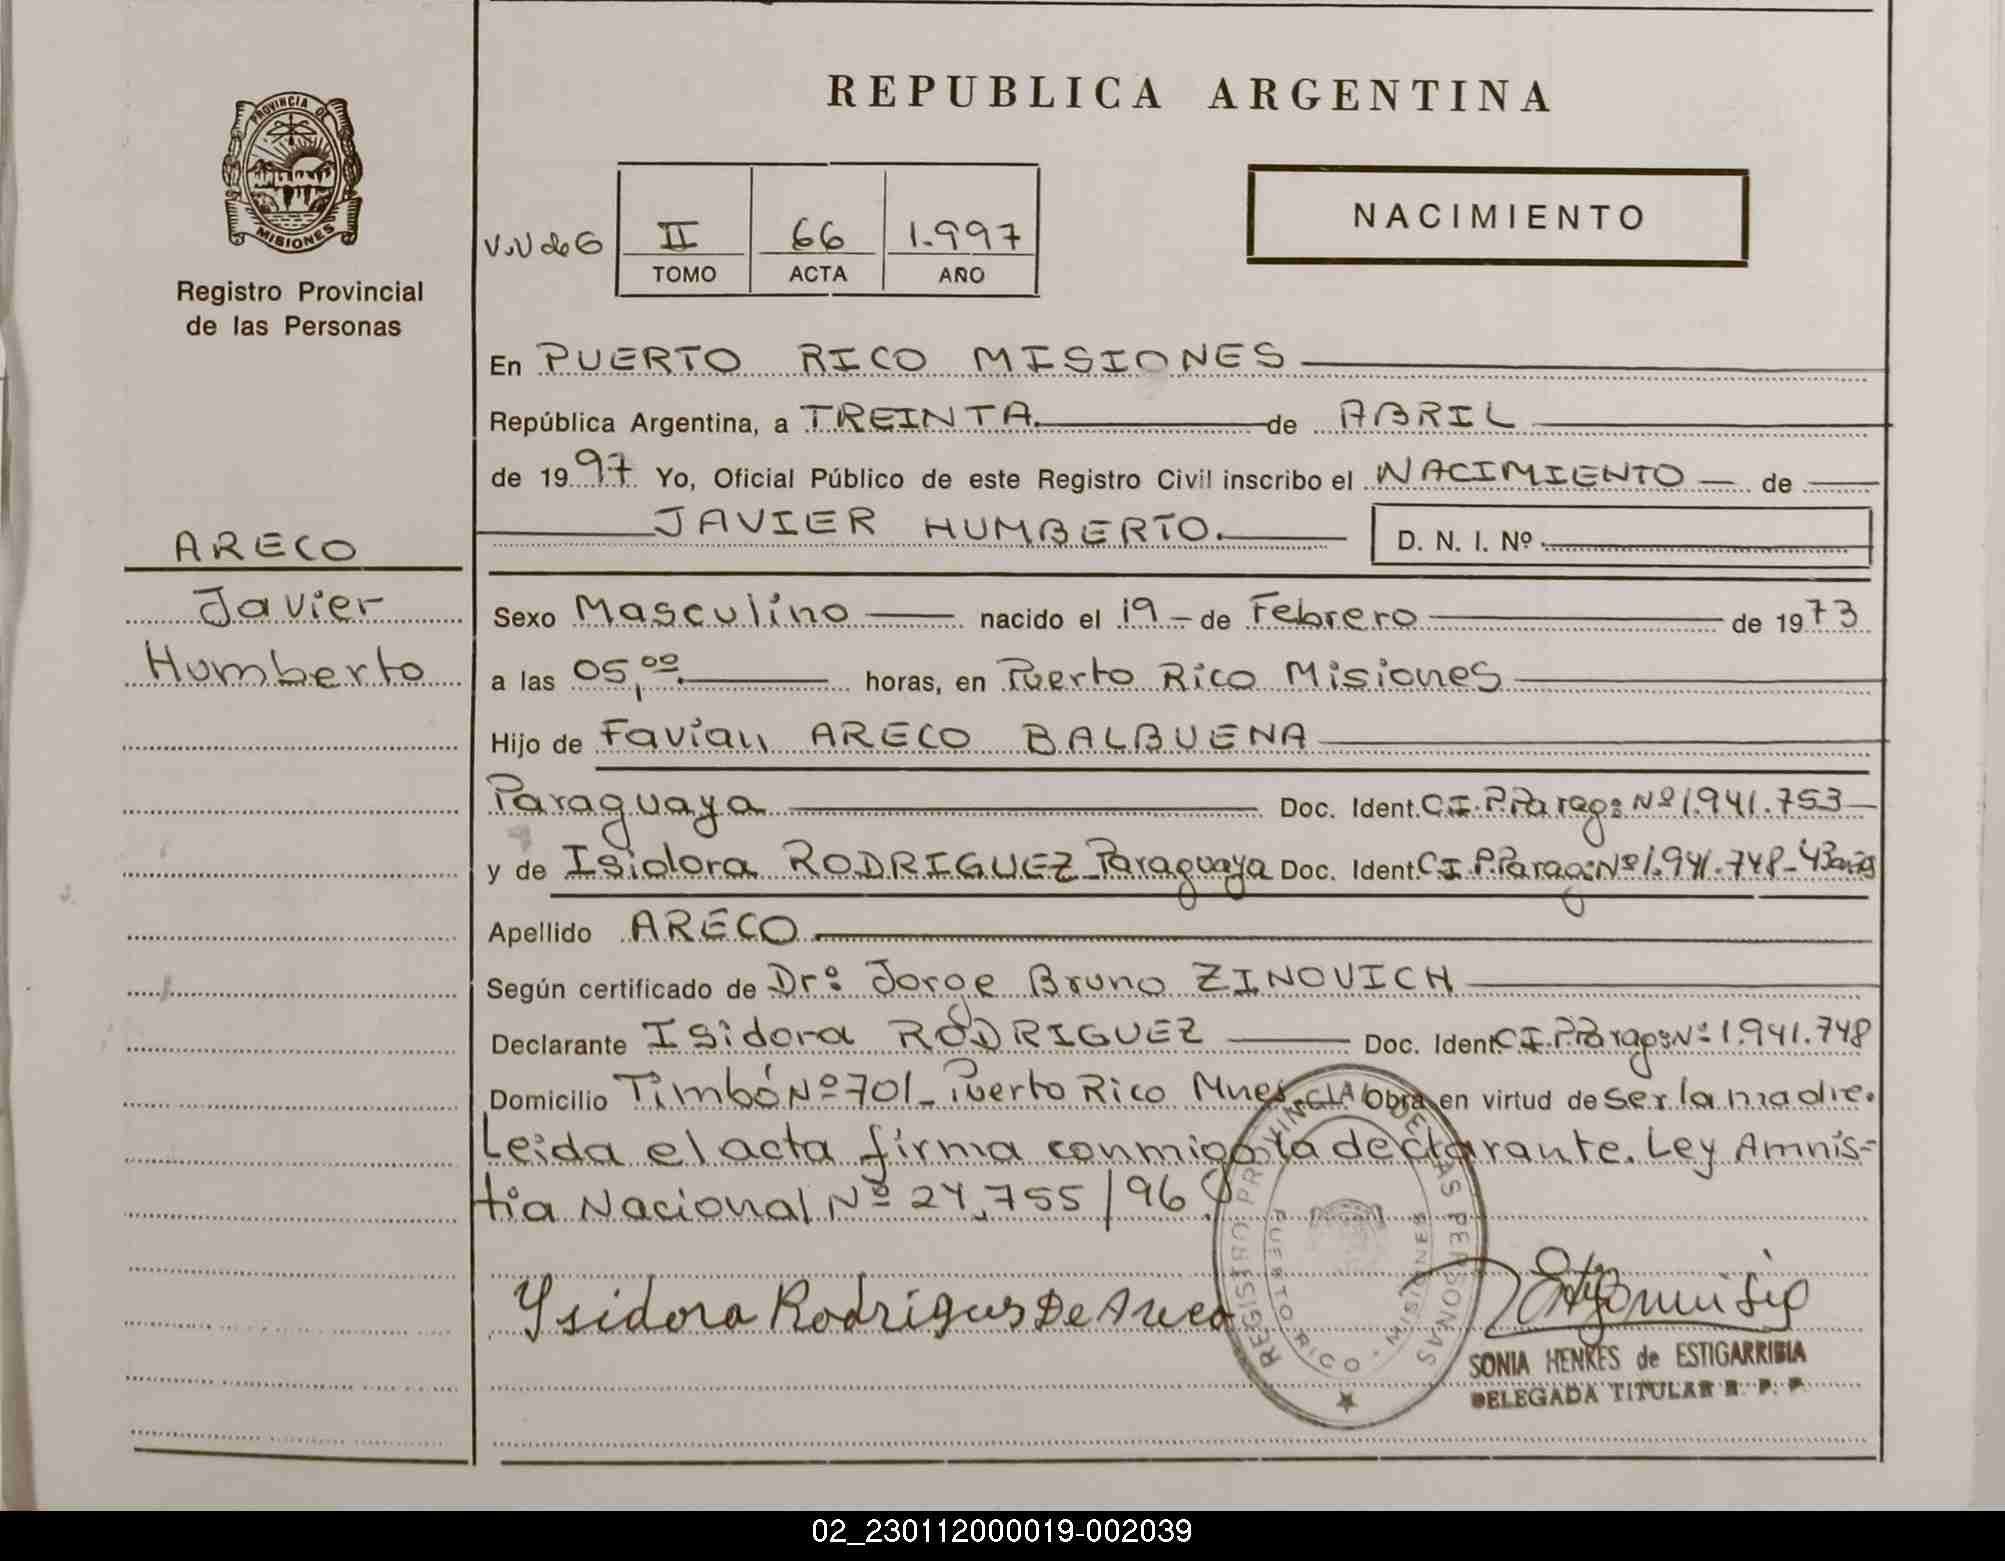 REPUBLICA ARGENTINA
PROVINCIA DE
MISIONES
Registro Provincial
de las Personas
NACIMIENTO
II 66 1.997
TOMO ACTA AÑO
En PUERTO RICO MISIONES
República Argentina, a TREINTA. de ABRIL
de 1997 Yo, Oficial Público de este Registro Civil inscribo el NACIMIENTO de
JAVIER HUMBERTO. D. N. I. Nº
ARECO
Javier
Humberto
Sexo Masculino nacido el 19 de Febrero de 1973
a las 05,00 horas, en Puerto Rico Misiones
Hijo de Favian ARECO BALBUENA
Paraguaya Doc. Ident. C.I.P.Parag: Nº 1.941.753
y de Isidora RODRIGUEZ Paraguaya Doc. Ident. C.I.P.Parag: Nº 1.941.748 - 43 años
Apellido ARECO
Según certificado de Dr: Jorge Bruno ZINOVICH
Declarante Isidora RODRIGUEZ Doc. Ident. C.I.P.Parag: Nº 1.941.748
Domicilio Timbó Nº 701 - Puerto Rico Mnes. Obra en virtud de ser la madre.
Leida el acta firma conmigo la declarante. Ley Amnis=
tia Nacional Nº 24.755/96.
Ysidora Rodrigues De Areco
REGISTRO PROVINCIAL DE LAS PERSONAS
PUERTO RICO - MISIONES
SONIA HENKES de ESTIGARRIBIA
DELEGADA TITULAR R. P. P.
02_230112000019-002039